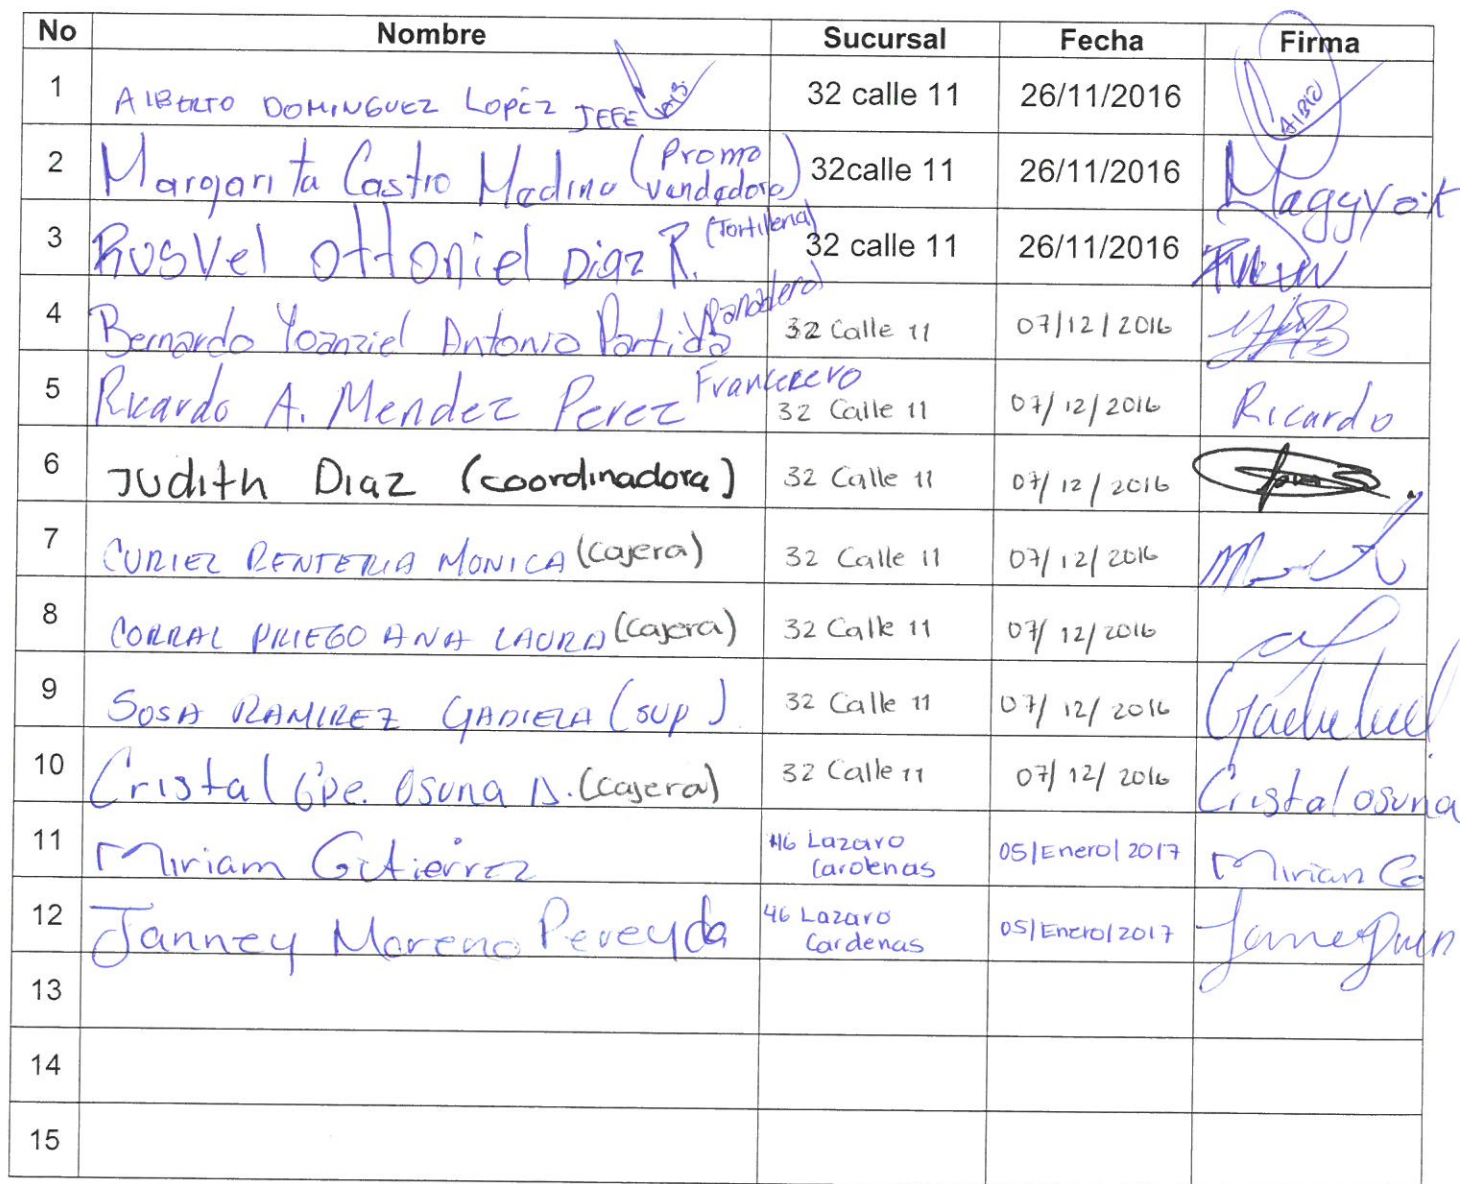 No Nombre Sucursal Fecha Firma
1 AlBERTO DOMINGUEZ LopEz JEFE 32 calle 11 26/11/2016 AlBTO
2 Margarita Castro Medina (Promo vendedora) 32calle 11 26/11/2016 Maggyoik
3 Rusvel Ottoniel Diaz R. (Tortilleria) 32 calle 11 26/11/2016
4 Bernardo Yoanziel Antonio Partida Panadero) 32 Calle 11 07/12/2016
5 Ricardo A. Mendez Perez Francecero 32 Calle 11 07/12/2016 Ricardo
6 Judith Diaz (coordinadora) 32 Calle 11 07/12/2016
7 CURIEZ RENTERIA MONICA (Cajera) 32 Calle 11 07/12/2016
8 CORRAL PRIEGO ANA LAURA (Cajera) 32 Calle 11 07/12/2016
9 SOSA RAMIREZ GADIELA (SUP) 32 Calle 11 07/12/2016
10 Cristal Gpe. Osuna D. (Cajera) 32 Calle 11 07/12/2016 Cristal osuna
11 Miriam Gutierrez 46 Lazaro Cardenas 05/Enero/2017 Mirian
12 Janney Moreno Pereyda 46 Lazaro Cardenas 05/Enero/2017
13
14
15